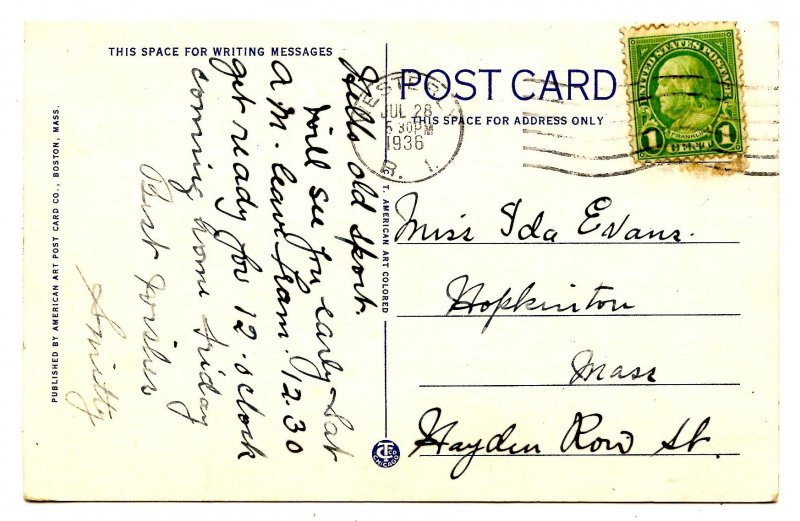 THIS SPACE FOR WRITING MESSAGES
POST CARD
THIS SPACE FOR ADDRESS ONLY
UNITED STATES POSTAGE
FRANKLIN
1 CENT 1
JUL 28
5 30 PM
1936
R. I.
Hillo old sport.
Will see you early Sat
a m. leave 12.30
get ready for 12.o clock
coming home Friday
Best Wishes
Smitty
Miss Ida Evans.
Hopkinton
Mass
Hayden Row St.
PUBLISHED BY AMERICAN ART POST CARD CO., BOSTON, MASS.
C. T. AMERICAN ART COLORED
CT CO
CHICAGO